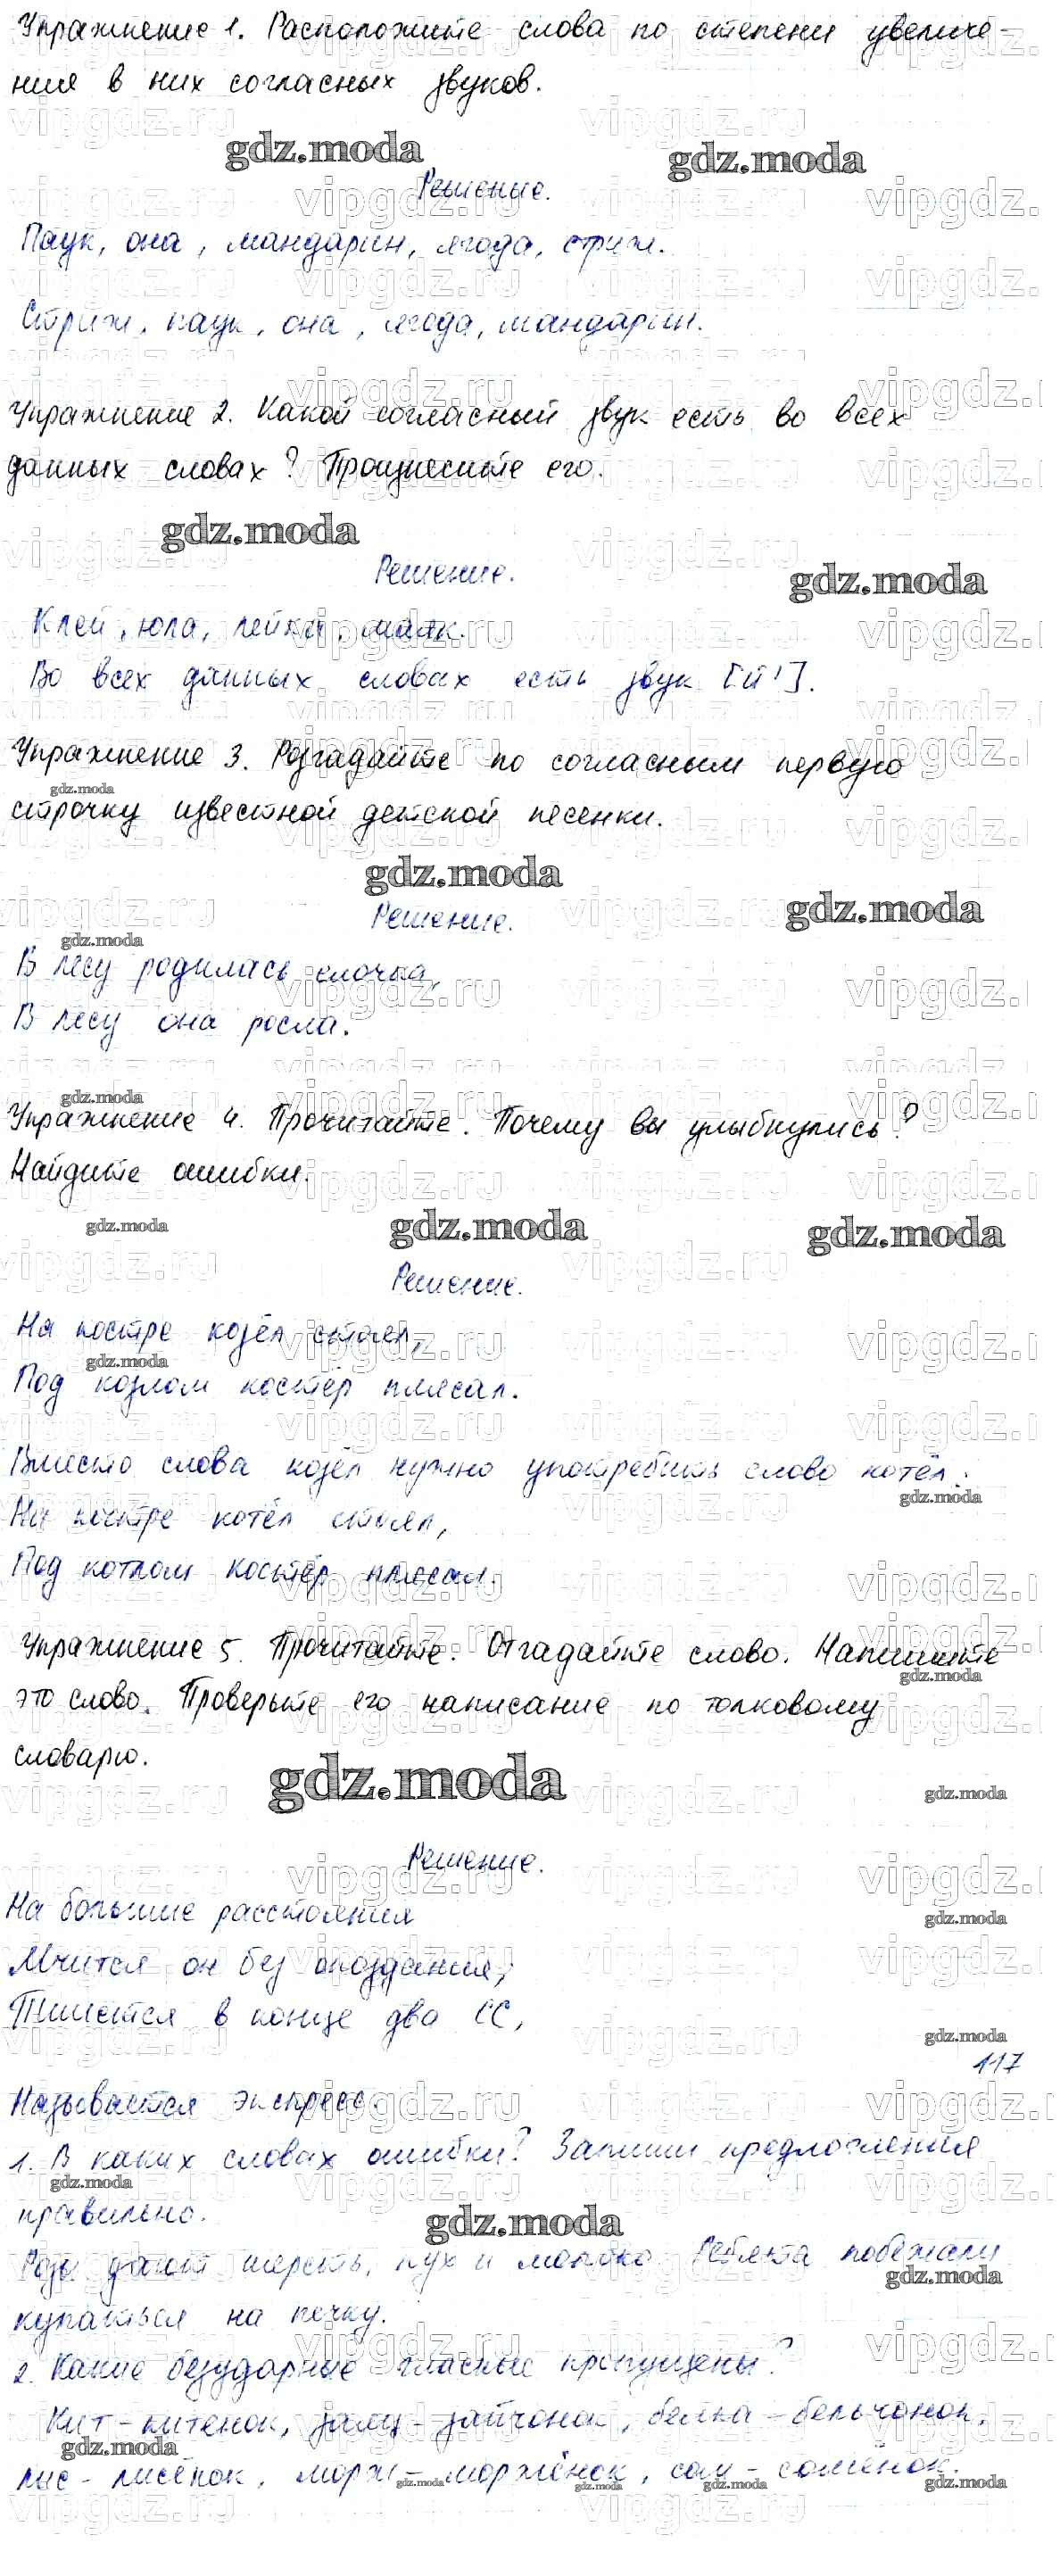 Упражнение 1. Расположите слова по степени увеличе-
ния в них согласных звуков.
gdz.moda
Решение.
Паук, она, мандарин, ягода, стриж.
Стриж, паук, она, ягода, мандарин.
Упражнение 2. Какой согласный звук есть во всех
данных словах? Произнесите его.
gdz.moda
Решение.
Клей, юла, лейка, маяк.
Во всех данных словах есть звук [й'].
Упражнение 3. Разгадайте по согласным первую
строчку известной детской песенки.
gdz.moda
Решение.
В лесу родилась елочка,
В лесу она росла.
Упражнение 4. Прочитайте. Почему вы улыбнулись?
Найдите ошибки.
gdz.moda
Решение.
На костре козёл стоял,
Под козлом костёр плясал.
Вместо слова козёл нужно употребить слово котёл.
На костре котёл стоял,
Под котлом костёр плясал.
Упражнение 5. Прочитайте. Отгадайте слово. Напишите
это слово. Проверьте его написание по толковому
словарю.
gdz.moda
Решение.
На большие расстояния
Мчится он без опоздания,
Пишется в конце два СС,
117
Называется экспресс.
1. В каких словах ошибки? Запиши предложения
правильно.
gdz.moda
дают шерсть, пух и молоко. Ребята побежали
купаться на
2. Какие безударные гласные пропущены?
Кит - китенок, - зайчонок, белка - бельчонок,
лис - лисёнок, морж - моржёнок, сом - сомёнок.